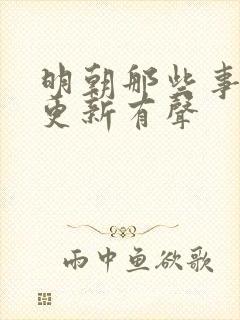 明朝那些事
更新有聲
雨中鱼欲歌